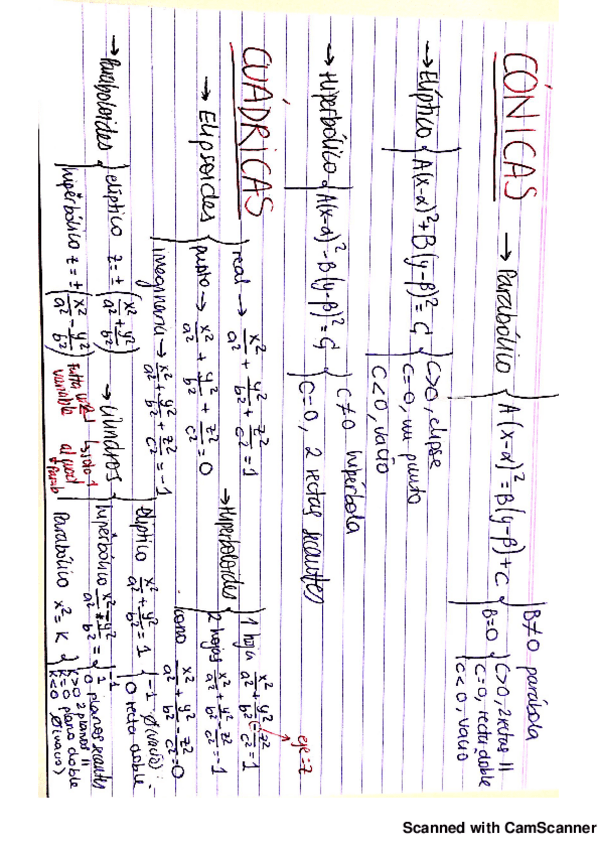 CÓNICAS
→ Parabólico { A(x-α)² = B(y-β) + C
B≠0 parábola
B=0 { C>0, 2 rectas ||
C=0, recta doble
C<0, vacío
→ Elíptico { A(x-α)² + B(y-β)² = C
C>0, elipse
C=0, un punto
C<0, vacío
→ Hiperbólico { A(x-α)² - B(y-β)² = C
C≠0 hipérbola
C=0, 2 rectas secantes
CUÁDRICAS
→ Elipsoides
real → x²/a² + y²/b² + z²/c² = 1
punto → x²/a² + y²/b² + z²/c² = 0
imaginario → x²/a² + y²/b² + z²/c² = -1
→ Hiperboloides
1 hoja x²/a² + y²/b² - z²/c² = 1
eje = z
2 hojas x²/a² + y²/b² - z²/c² = -1
cono x²/a² + y²/b² - z²/c² = 0
→ Paraboloides
elíptico z = ± (x²/a² + y²/b²)
hiperbólico z = ± (x²/a² - y²/b²)
→ Cilindros
variable
Elíptico x²/a² + y²/b² = 1
{ -1 Ø(vacío)
0 recta doble
hiperbólico x²/a² - y²/b² =
{ 1
-1
0 planos secantes
Parabólico x² = K
{ K>0 2 planos ||
K=0 plano doble
K<0 Ø(vacío)
Scanned with CamScanner